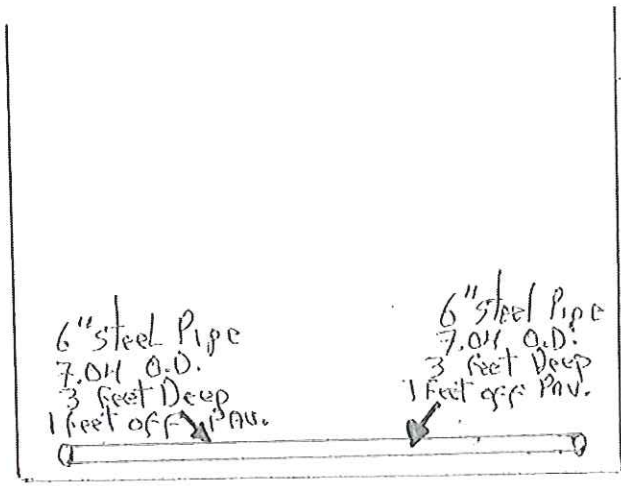 6" Steel Pipe
7.04 O.D.
3 feet Deep
1 feet off PAV.
6" Steel Pipe
7.04 O.D.
3 feet Deep
1 feet off PAV.